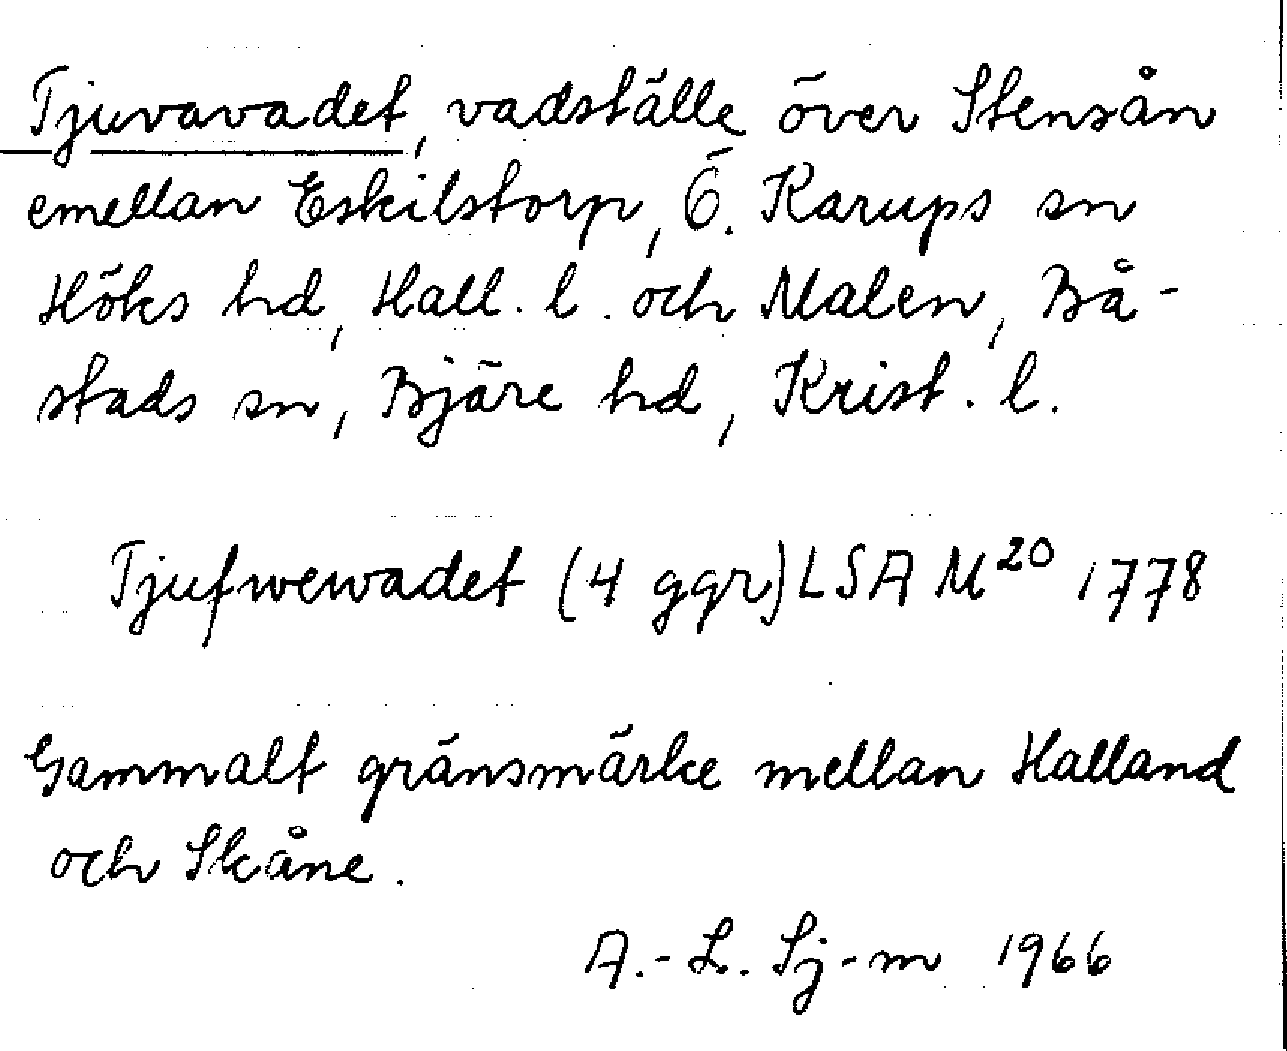 Tjuvavadet, vadställe över Stensån
emellan Eskilstorp, Ö. Karups sn
Höks hd, Hall. l. och Malen, Bå-
stads sn, Bjäre hd, Krist. l.
Tjufwewadet (4 ggr) LSA M²⁰ 1778
Gammalt gränsmärke mellan Halland
och Skåne.
A.-L. Sj-m 1966